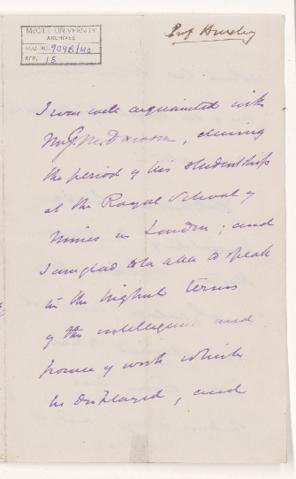 McGILL UNIVERSITY
ARCHIVES
ACC. NO. 909B/4c
REF. 15
Prof Huxley
I was well acquainted with
Mr G. M. Dawson, during
the period of his studentship
at the Royal School of
Mines in London; and
I am glad to be able to speak
in the highest terms
of the intelligence and
power of work which
he displayed, and